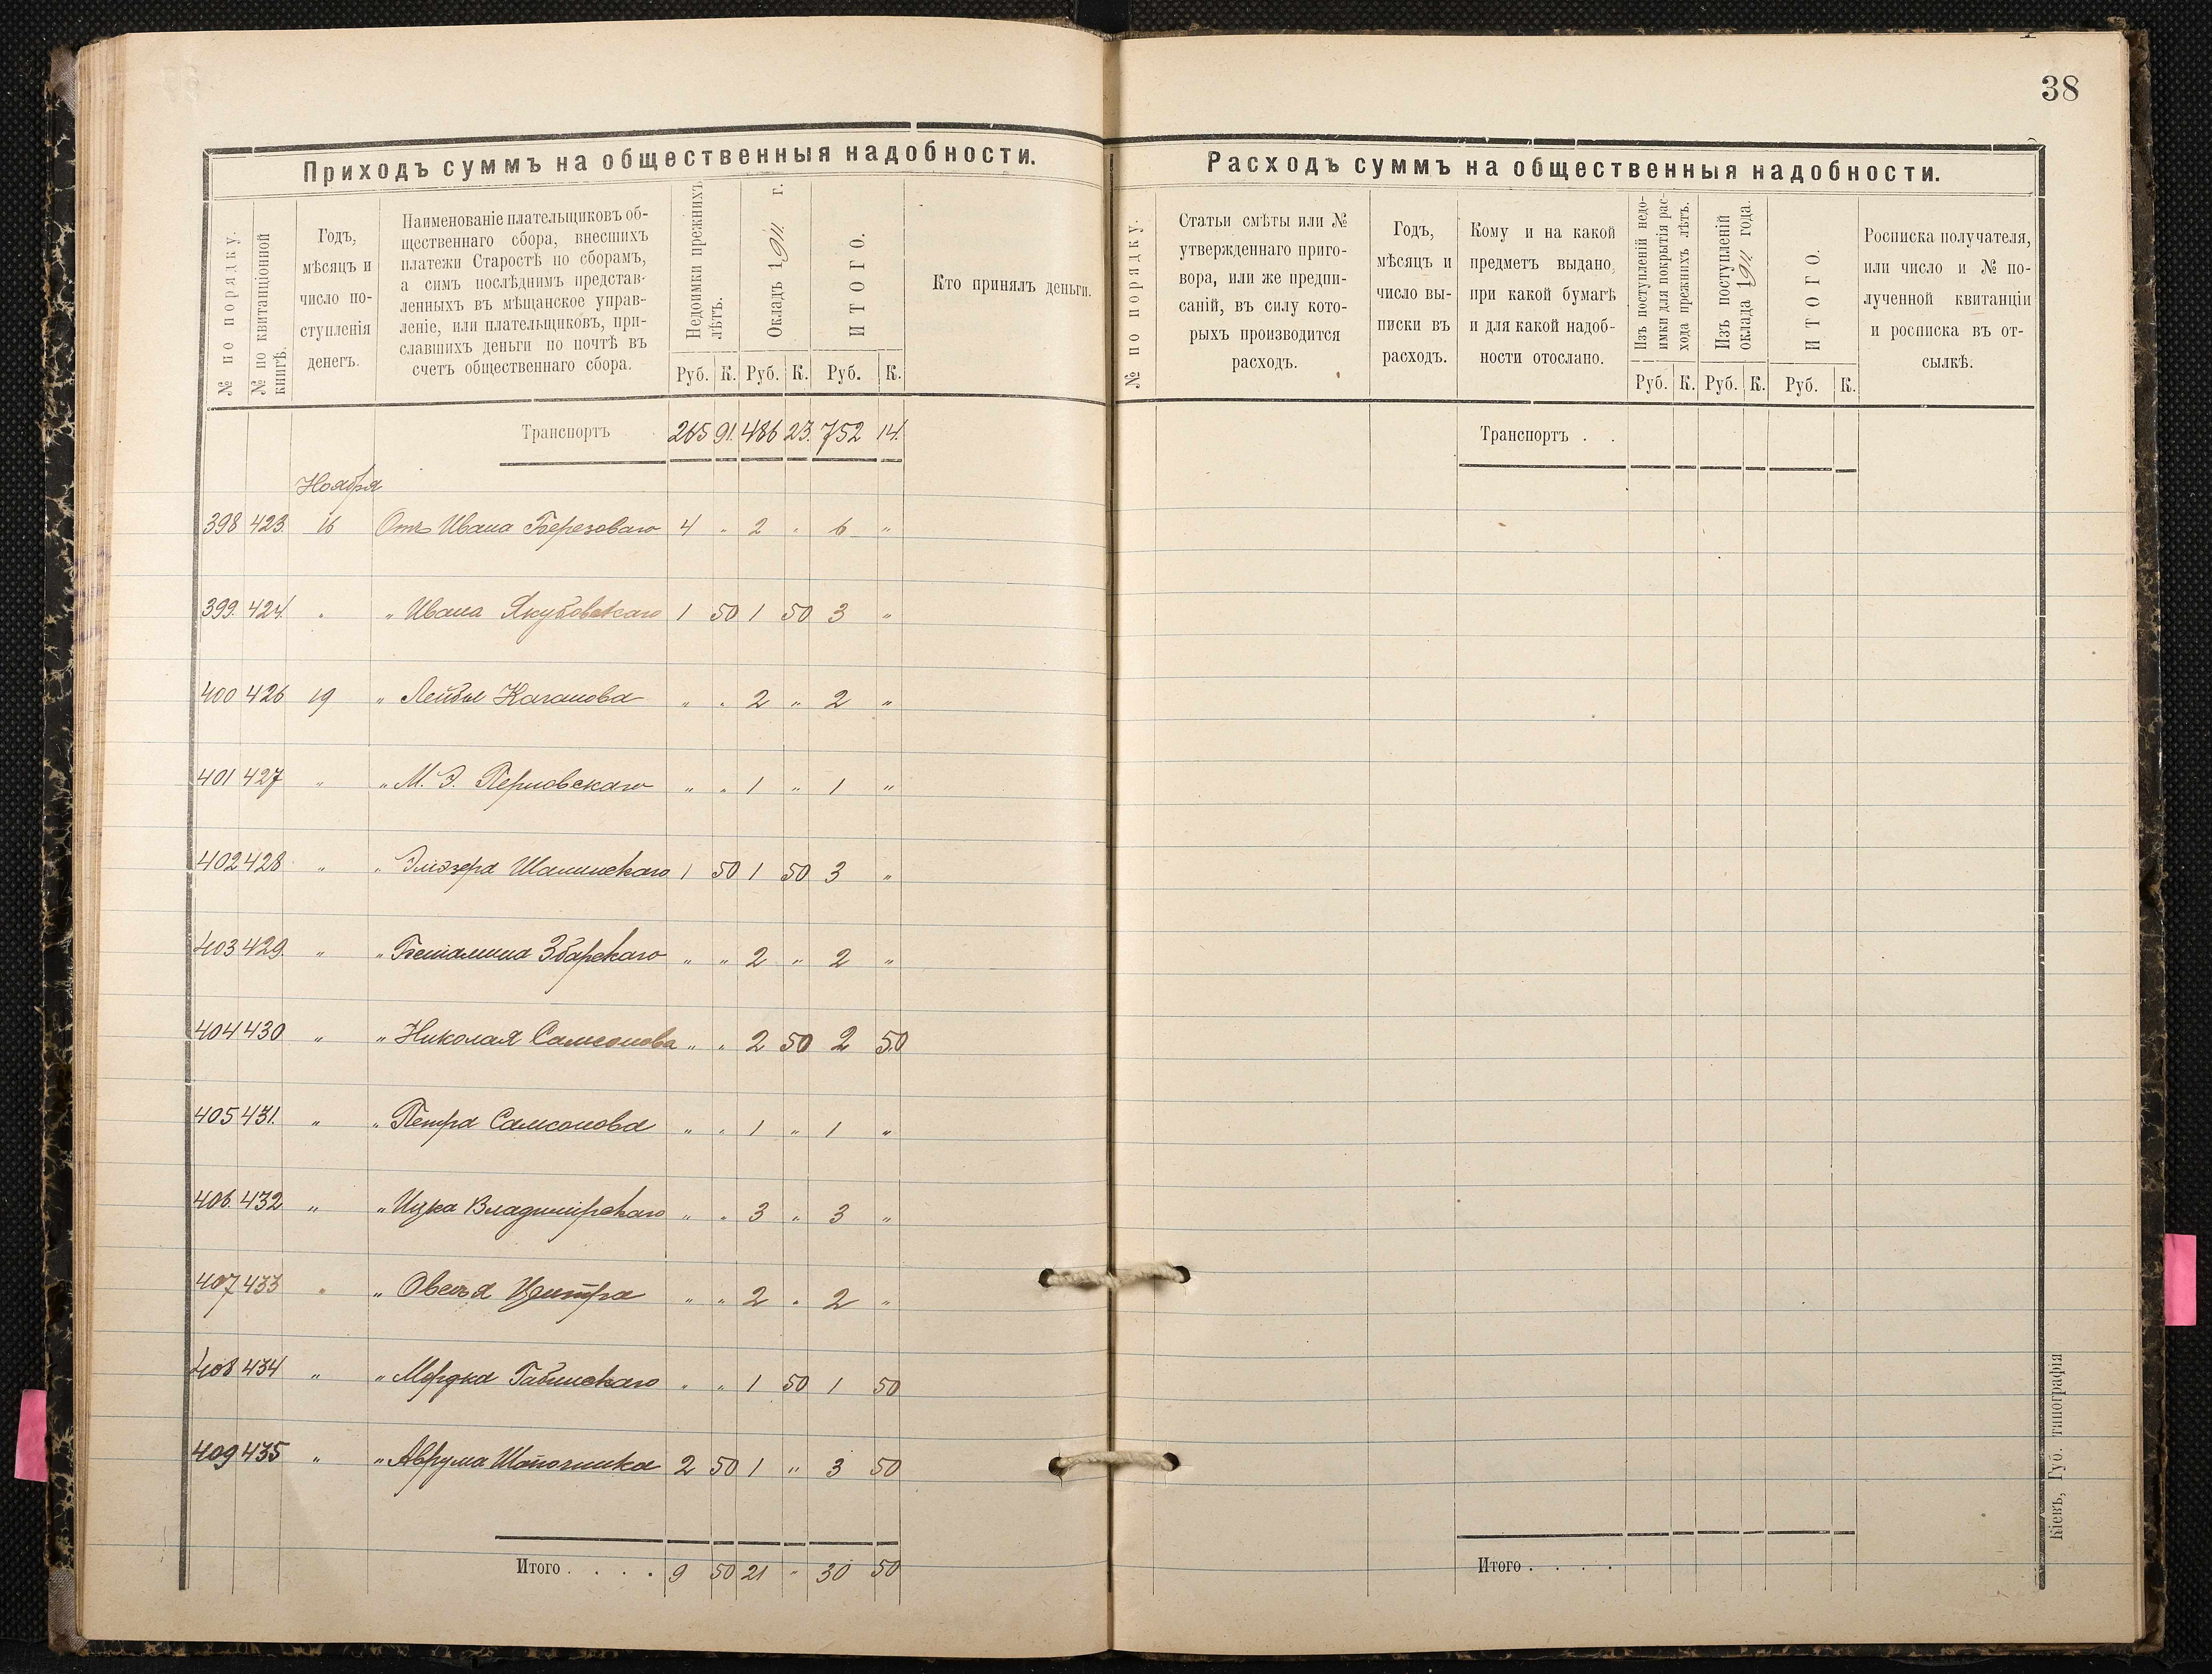 38
Приходъ суммъ на общественныя надобности.
№ по порядку.
№ по квитанціонной книгѣ.
Годъ,
мѣсяцъ и
число по-
ступленія
денегъ.
Наименованіе плательщиковъ об-
щественнаго сбора, внесшихъ
платежи Старостѣ по сборамъ,
а симъ послѣднимъ представ-
ленныхъ въ мѣщанское управ-
леніе, или плательщиковъ, при-
славшихъ деньги по почтѣ въ
счетъ общественнаго сбора.
Недоимки прежнихъ лѣтъ.
Окладъ 1911 г.
ИТОГО.
Руб. К. Руб. К. Руб. К.
Кто принялъ деньги.
Транспортъ 265 91. 486 23. 752 14.
Ноября
398 423. 16 Отъ Ивана Березоваго 4 " 2 " 6 "
399. 424. " " Ивана Якубовскаго 1 50 1 50 3 "
400 426 19 " Лейбы Каганова " " 2 " 2 "
401 427 " " М. Э. Перновскаго " " 1 " 1 "
402 428 " " Эліозера 1 50 1 50 3 "
403 429. " " Беніамина Збарскаго " " 2 " 2 "
404 430 " " Николая Самсонова " " 2 50 2 50
405 431. " " Петра Самсонова " " 1 " 1 "
406. 432 " " Ицка Владимірскаго " " 3 " 3 "
407 433 " " Овсея Центра " " 2 " 2 "
408 434 " " Мордка Габинскаго " " 1 50 1 50
409 435 " " Аврума Шапочника 2 50 1 " 3 50
Итого . . . . 9 50 21 " 30 50
Расходъ суммъ на общественныя надобности.
№ по порядку.
Статьи смѣты или №
утвержденнаго приго-
вора, или же предпи-
саній, въ силу кото-
рыхъ производится
расходъ.
Годъ,
мѣсяцъ и
число вы-
писки въ
расходъ.
Кому и на какой
предметъ выдано,
при какой бумагѣ
и для какой надоб-
ности отослано.
Изъ поступленій недо-
имки для покрытія рас-
хода прежнихъ лѣтъ.
Изъ поступленій
оклада 1911 года.
ИТОГО.
Руб. К. Руб. К. Руб. К.
Росписка получателя,
или число и № по-
лученной квитанціи
и росписка въ от-
сылкѣ.
Транспортъ . .
Итого . . . .
Кіевъ, Губ. типографія